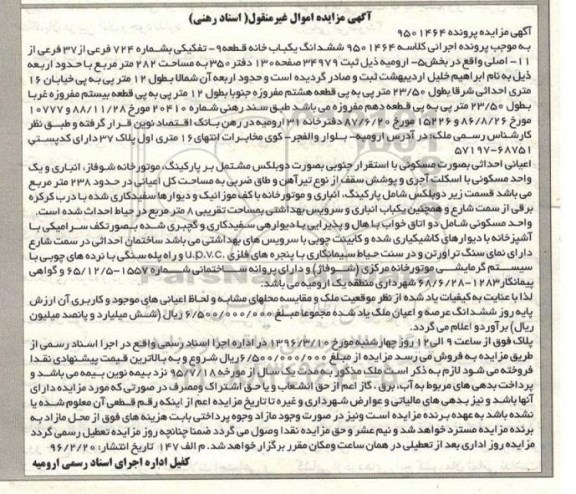 آگهی مزایده اموال غیرمنقول( اسناد رهنی)
آگهی مزایده پرونده ۹۵۰۱۴۶۴
به موجب پرونده اجرائی کلاسه ۹۵۰۱۴۶۴ ششدانگ یکباب خانه قطعه۹- تفکیکی بشماره ۷۲۴ فرعی از ۳۷ فرعی از
۱۱- اصلی واقع در بخش۵- ارومیه ذیل ثبت ۳۴۹۷۹ صفحه ۱۳۰ دفتر ۳۵۰ به مساحت ۲۸۲ متر مربع با حدود اربعه
ذیل به نام ابراهیم خلیل اردیبهشت ثبت و صادر گردیده است و حدود اربعه آن شمالا بطول ۱۲ متر پی به پی خیابان ۱۶
متری احداثی شرقا بطول ۲۳/۵۰ متر پی به پی قطعه هشتم مفروزه جنوبا بطول ۱۲ متر پی به پی قطعه بیستم مفروزه غربا
بطول ۲۳/۵۰ متر پی به پی قطعه دهم مفروزه می باشد طبق سند رهنی شماره ۲۰۴۱۰ مورخ ۸۸/۱۱/۲۸ و ۱۰۷۷۷
مورخ ۸۶/۸/۲۶ و ۱۵۲۲۶ مورخ ۸۷/۶/۲۰ دفترخانه ۳۱ ارومیه در رهن بانک اقتصاد نوین قرار گرفته و طبق نظر
کارشناس رسمی ملک: در آدرس ارومیه- بلوار والفجر- کوی مخابرات انتهای ۱۶ متری اول پلاک ۳۷ دارای کدپستی
۵۷۱۹۷-۶۸۷۵۱
اعیانی احداثی بصورت مسکونی با استقرار جنوبی بصورت دوبلکس مشتمل بر پارکینگ، موتورخانه شوفاز، انباری و یک
واحد مسکونی با اسکلت آجری و پوشش سقف از نوع تیرآهن و طاق ضربی به مساحت کل اعیانی در حدود ۲۳۸ متر مربع
می باشد قسمت زیر دوبلکس شامل پارکینگ، انباری و موتورخانه با کف موزائیک و دیوارها سفیدکاری شده با درب کرکره
برقی از سمت شارع و همچنین یکباب انباری و سرویس بهداشتی بمساحت تقریبی ۸ متر مربع در حیاط احداث شده است.
واحد مسکونی شامل دو اتاق خواب با هال و پذیرایی با دیوارهای سفیدکاری و گچبری شده بصورتکف سرامیکی با
آشپزخانه با دیوارهای کاشیکاری شده و کابینت چوبی با سرویس های بهداشتی می باشد ساختمان احداثی در سمت شارع
دارای نمای سنگ تراورتن و در سمت حیاط سیمانکاری با پنجره های فلزی u.p.v.c. و راه پله سنگی با نرده های چوبی با
سیستم گرمایشی موتورخانه مرکزی (شوفاز) و دارای پروانه ساختمانی شماره ۱۵۵۷-۶۵/۱۲/۵ و گواهی
پیمانکار ۱۲۸۳-۶۸/۶/۲۸ شهرداری منطقه یک ارومیه می باشد.
لذا با عنایت به کیفیات یاد شده از نظر موقعیت ملک و مقایسه محلهای مشابه و لحاظ اعیانی های موجود و کاربری آن ارزش
پایه روز ششدانگ عرصه و اعیان ملک یاد شده مجموعا مبلغ ۶/۵۰۰/۰۰۰/۰۰۰ ریال (شش میلیارد و پانصد میلیون
ریال) برآورد و اعلام می گردد.
پلاک فوق از ساعت ۹ الی ۱۲ روز چهارشنبه مورخ ۱۳۹۶/۳/۱۰ در اداره اجرا اسناد رسمی واقع در اجرا اسناد رسمی از
طریق مزایده به فروش می رسد مزایده از مبلغ ۶/۵۰۰/۰۰۰/۰۰۰ ریال شروع و به بالاترین قیمت پیشنهادی نقدا
فروخته می شود لازم به ذکر است ملک مذکور به مدت یک سال از مورخه ۹۵/۷/۱۸ نزد بیمه نوین بیمه می باشد و
پرداخت بدهی های مربوط به آب، برق، گاز اعم از حق انشعاب و یا حق اشتراک و مصرف در صورتی که مورد مزایده دارای
آنها باشد و نیز بدهی های مالیاتی و عوارض شهرداری و غیره تا تاریخ مزایده اعم از اینکه رقم قطعی آن معلوم شده یا
نشده باشد به عهده برنده مزایده است و نیز در صورت وجود مازاد وجوه پرداختی بابت هزینه های فوق از محل مازاد به
برنده مزایده مسترد خواهد شد و نیم عشر و حق مزایده نقدا وصول می گردد ضمنا چنانچه روز مزایده تعطیل رسمی گردد
مزایده روز اداری بعد از تعطیلی در همان ساعت و مکان مقرر برگزار خواهد شد. م الف ۱۴۷ تاریخ انتشار: ۹۶/۲/۲۰
کفیل اداره اجرای اسناد رسمی ارومیه